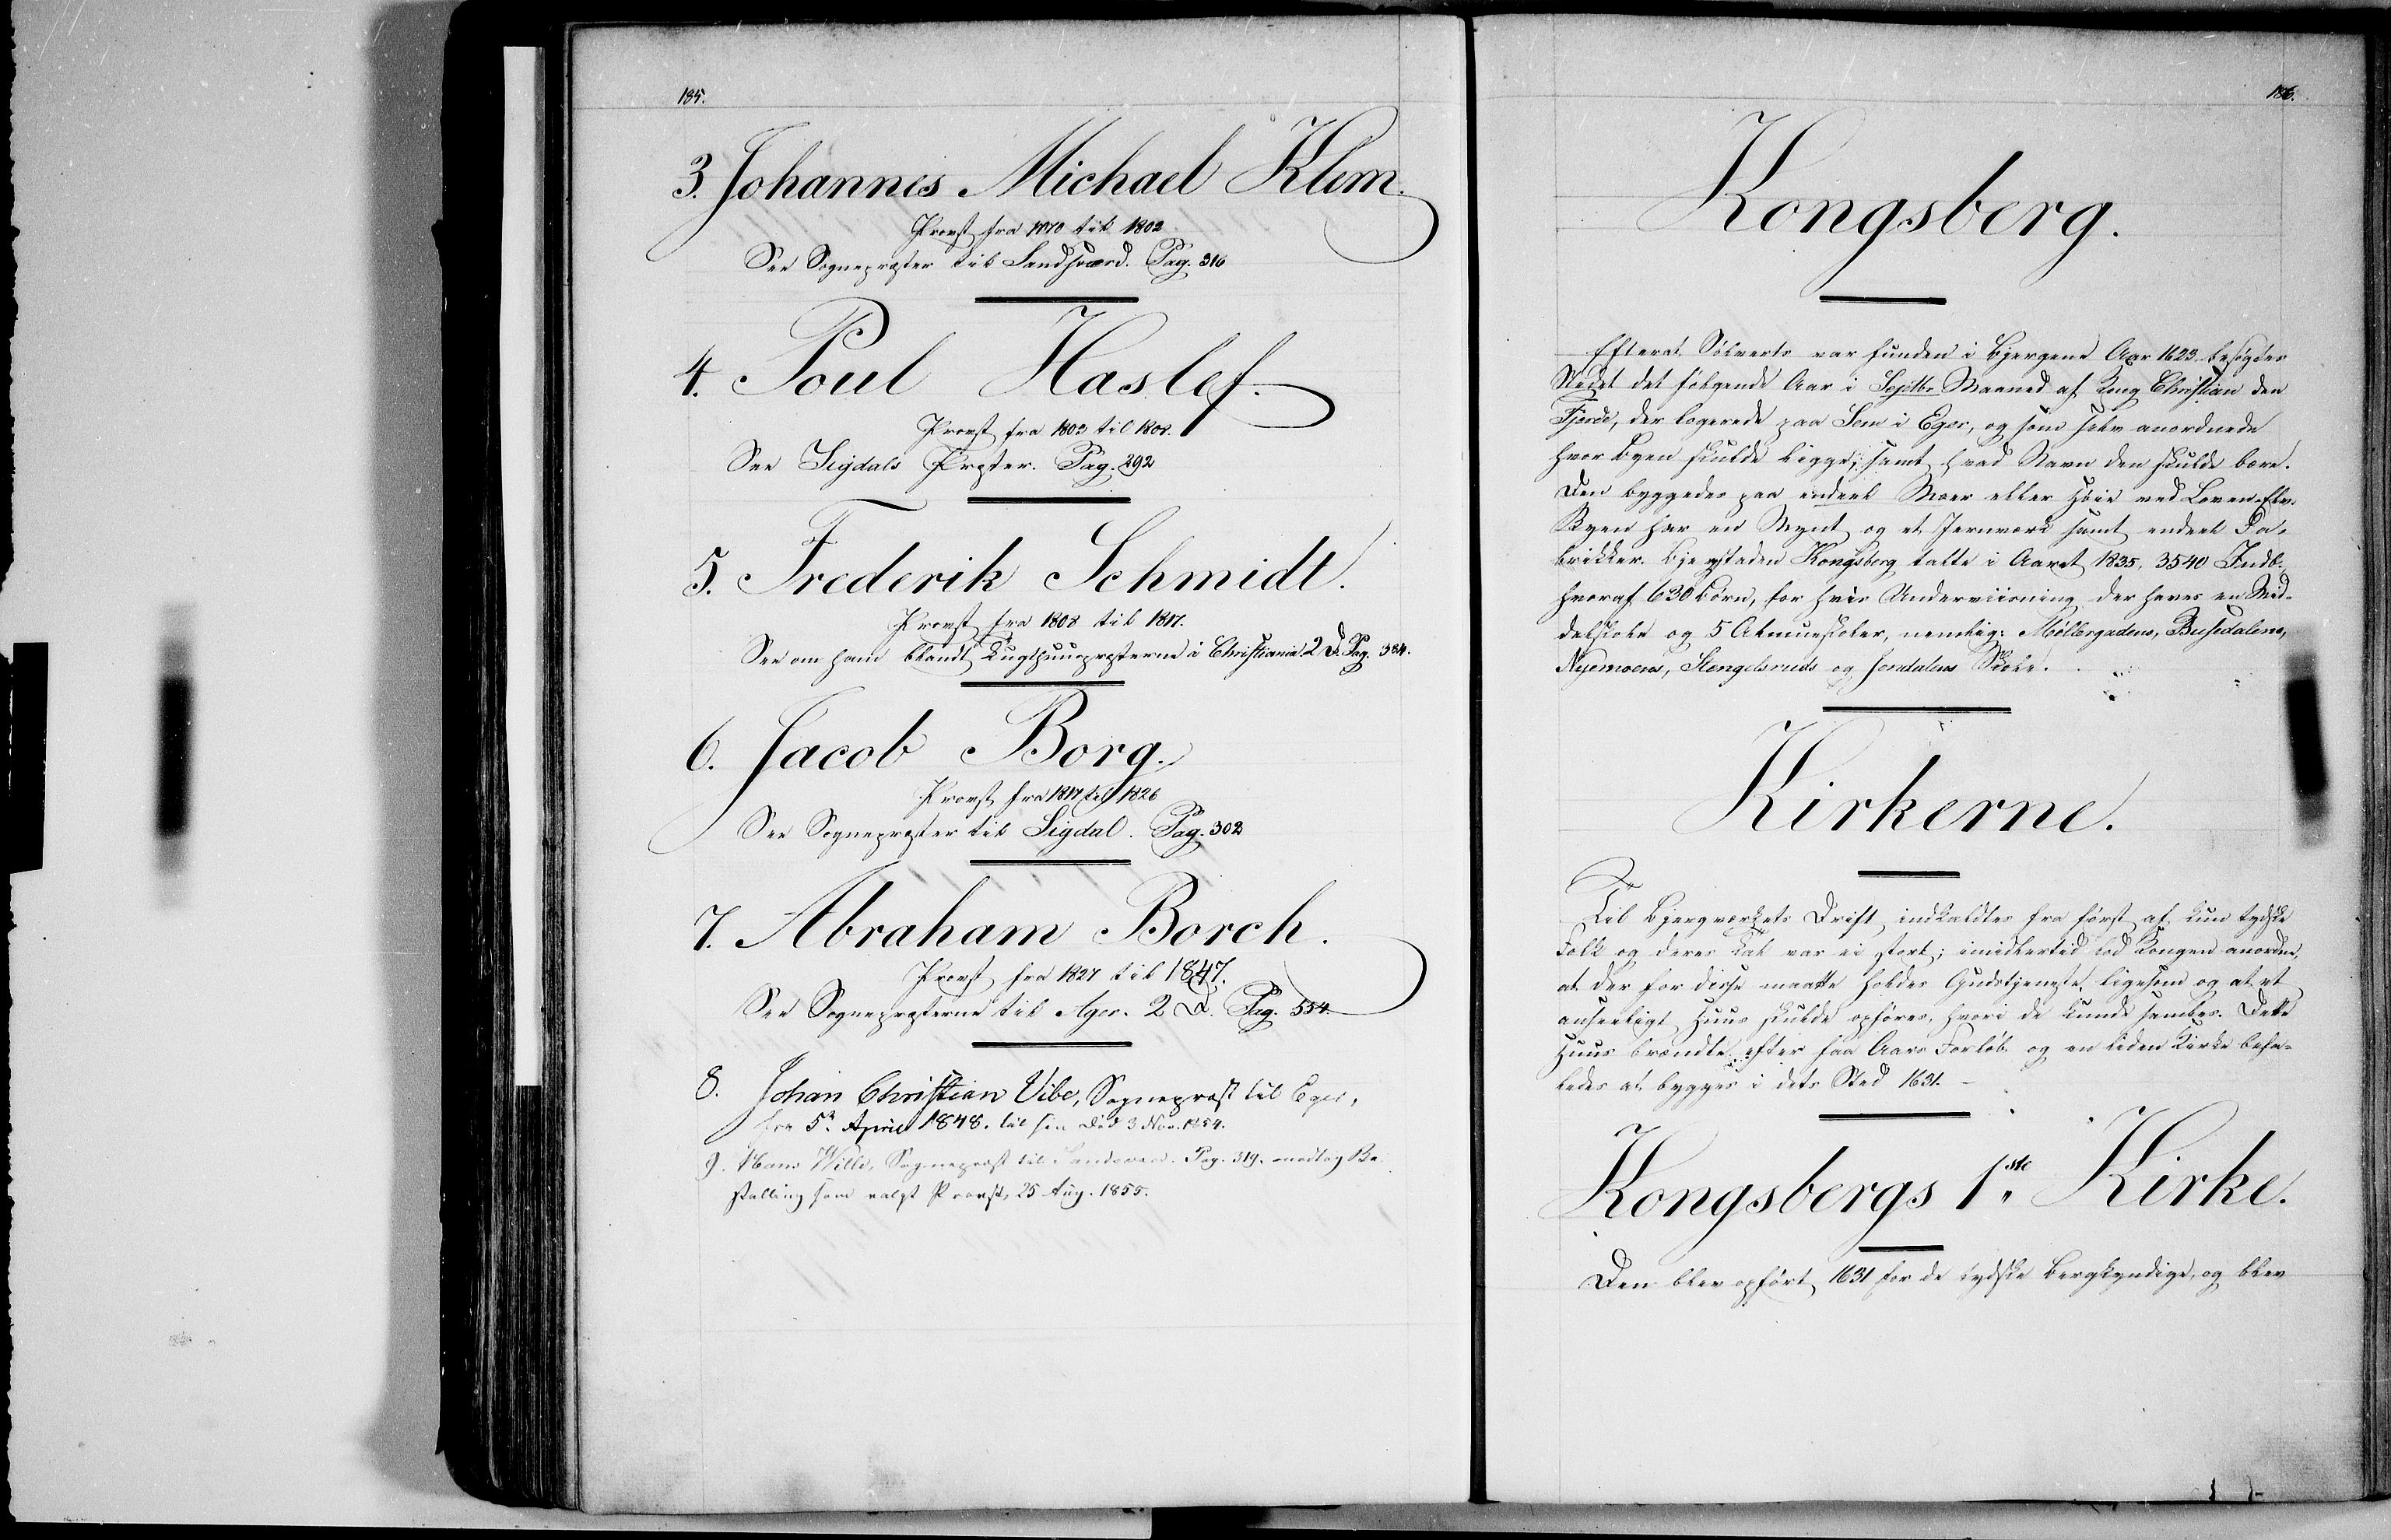 185.
3. Johannes Michael Klem.
Provst fra 1770 til 1802
See Sognepræster til Sandsværd. Pag. 316
4. Poul Haslef.
Provst fra 1803 til 1808.
See Sigdals Præster. Pag. 292
5. Frederik Schmidt.
Provst fra 1808 til 1817.
See om ham blandt Tugthuuspræsterne i Christiania 2 D. Pag. 384.
6. Jacob Borg.
Provst fra 1817 til 1826
See Sognepræster til Sigdal. Pag. 302
7. Abraham Borch.
Provst fra 1827 til 1847.
See Sognepræsterne til Ager. 2 D. Pag. 554.
8. Johan Christian Vibe, Sognepræst til Eger,
fra 5te April 1848. til sin Død 3 Nov. 1854.
9. Hans Wille, Sognepræst til Sandsværd. Pag. 319. modtog Be-
stalling som valgt Provst, 25 Aug. 1855.
186.
Kongsberg.
Efterat Sølverts var funden i Bjergene Aar 1623 besøgtes
Stedet det følgende Aar i Septbr Maaned af Kong Christian den
Fjerde, der logerede paa Sem i Eger, og som selv anordnede
hvor Byen skulde ligge, samt hvad Navn den skulde bære.
Den byggedes paa endeel Moer eller Høie ved Loven-Elv.
Byen har en Mynt og et Jernværk samt endeel Fa-
brikker. Bjergstaden Kongsberg talte i Aaret 1835, 3540 Indb.
hvoraf 630 Børn, for hvis Underviisning der haves en Mid-
delskole og 5 Almueskoler, nemlig: Møllergadens, Busedalens,
Nyemoens, Stengelsruds og Jondalens Skole.
Kirkerne.
Til Bjergværkets Drift indkaldtes fra først af kun tydske
Folk og deres Tal var ei stort; imidlertid lod Kongen anordne,
at der for disse maatte holdes Gudstjeneste, ligesom og at et
anseeligt Huus skulde opføres, hvori de kunde samles. Dette
Huus brændte efter faa Aars Forløb og en liden Kirke befa-
ledes at bygges i dets Sted 1631. -
Kongsbergs 1ste Kirke.
Den blev opført 1631 for de tydske Bergkyndige, og blev